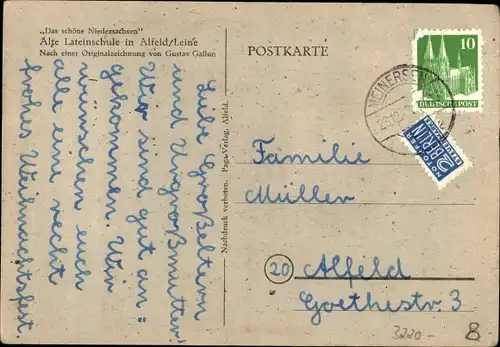 „Das schöne Niedersachsen"
Alte Lateinschule in Alfeld/Leine
Nach einer Originalzeichnung von Gustav Gallun
POSTKARTE
10
DEUTSCHE POST
MEINERSEN
NOTOPFER
2 BERLIN
STEUERMARKE
Liebe Großeltern
und Urgroßmutter!
Wir sind gut an=
gekommen. Wir
wünschen euch
alle ein recht
frohes Weihnachtsfest.
Nachdruck verboten. Paga-Verlag, Alfeld.
Familie
Müller
20 Alfeld
Goethestr. 3
3220-
8